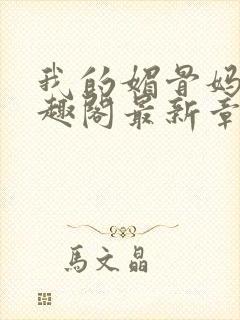 我的媚骨妈
趣阁最新章
馬文晶